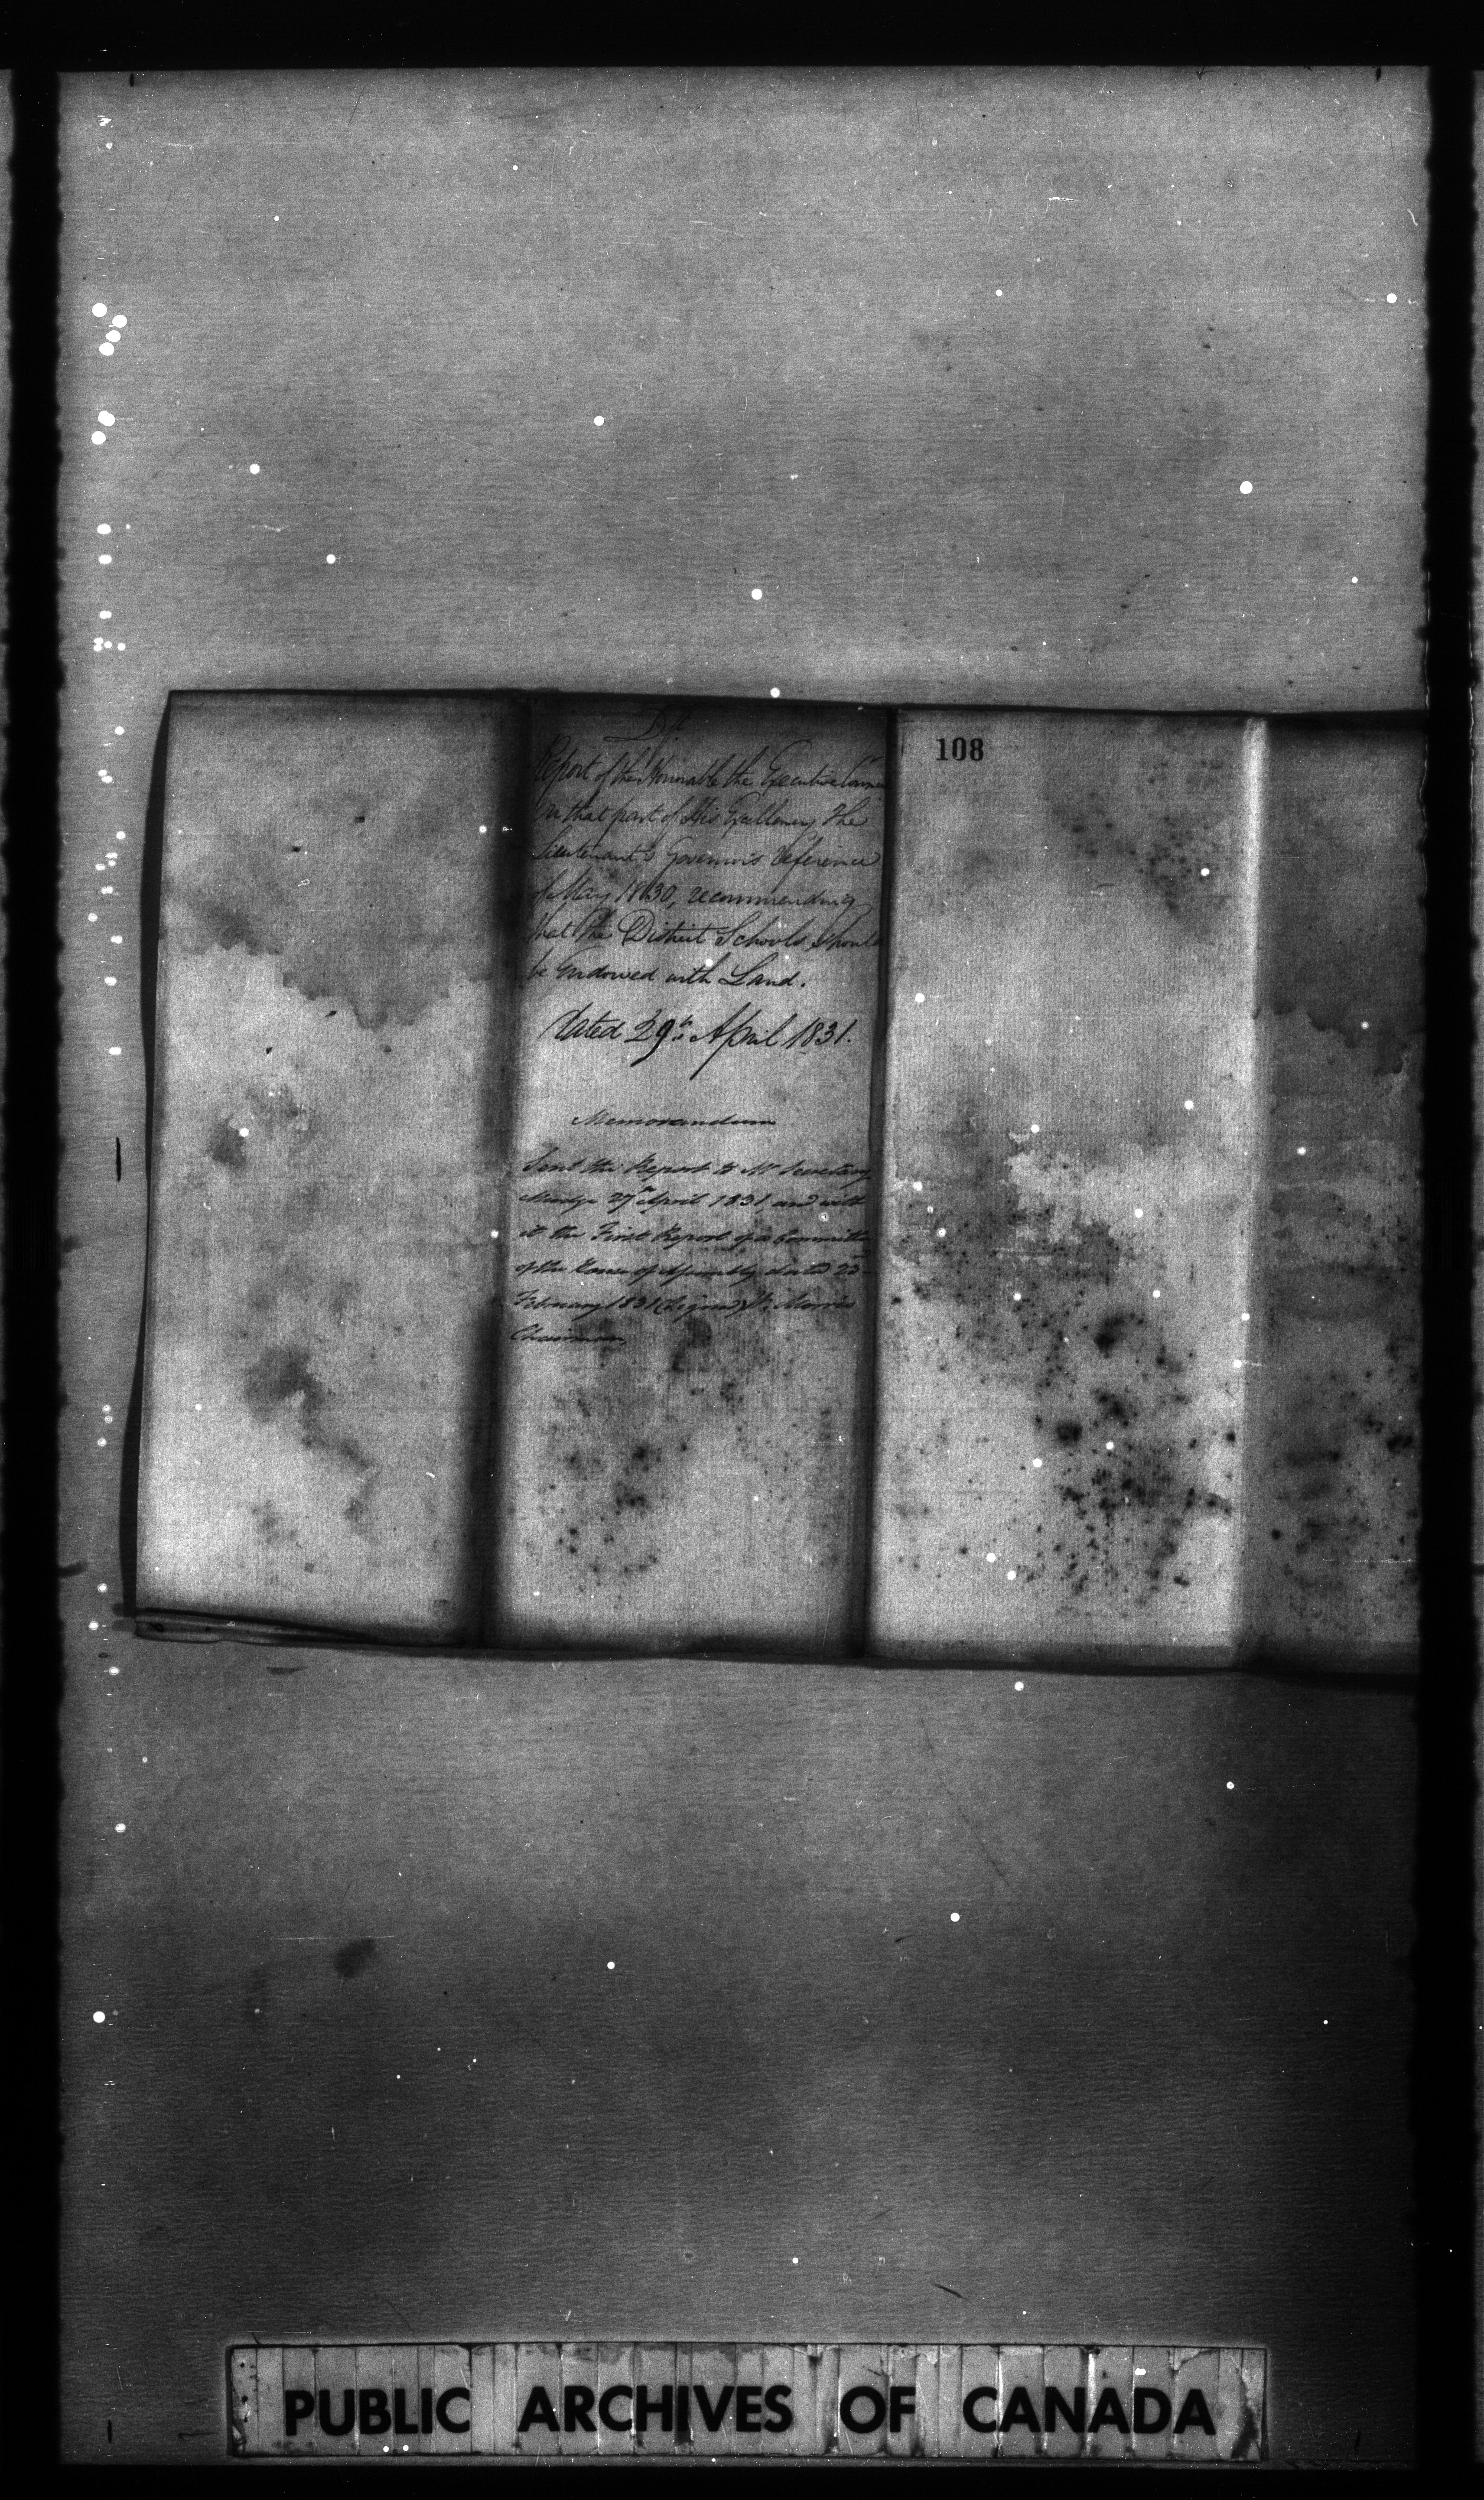 Dft
Report of the Honorable the Executive Counc
On that part of His Excellency The
Lieutenant's Governor's reference
of May 1830, recommending
that the District Schools should
be Endowed with Land.
dated 29th April 1831.
Memorandum
Sent this Report to Mr Secretary
Mudge 29th April 1831, and with
it the First Report of a Committee
of the House of Assembly dated 23
February 1831 (Signed) W. Morris
Chairman
108
PUBLIC ARCHIVES OF CANADA